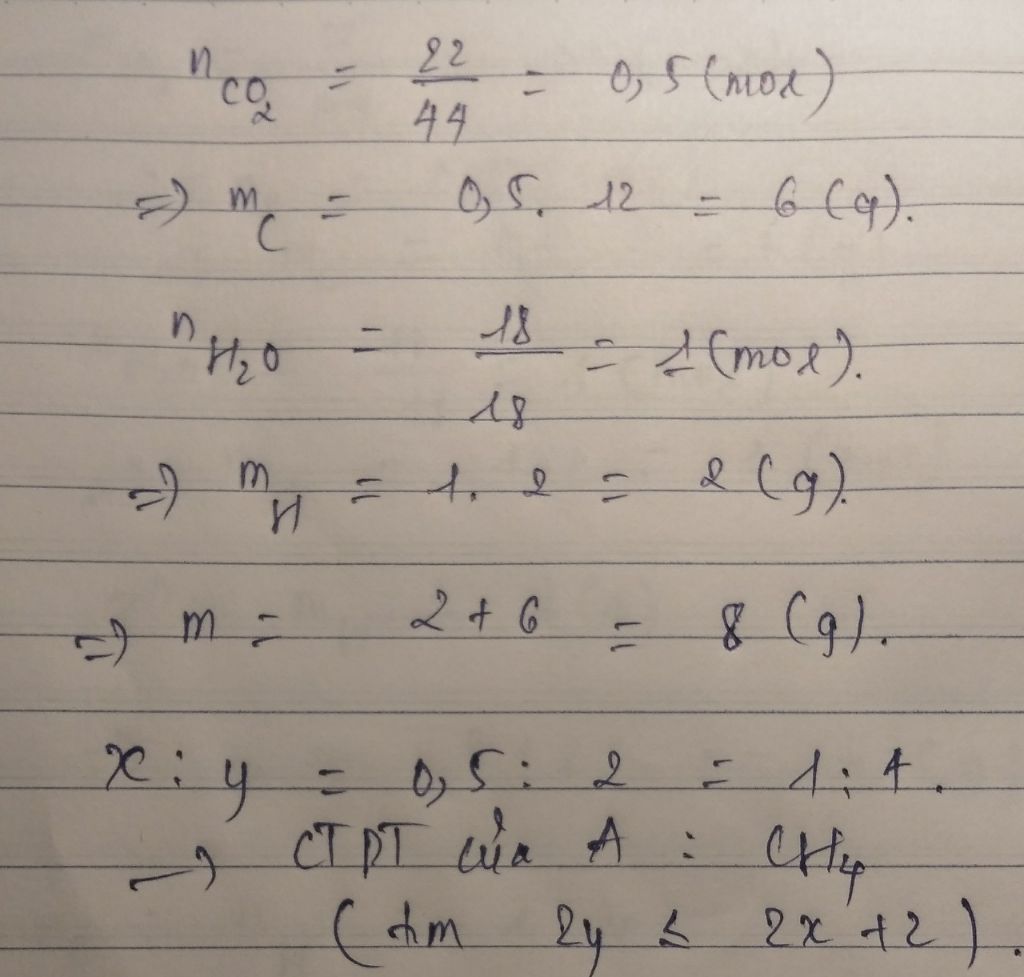 n CO₂ = 22/44 = 0,5 (mol)
=> m C = 0,5. 12 = 6 (g).
n H₂O = 18/18 = 1 (mol).
=> m H = 1. 2 = 2 (g).
=> m = 2 + 6 = 8 (g).
x : y = 0,5 : 2 = 1 : 4.
→ CTPT của A : CH₄
(tm 2y ≤ 2x + 2).